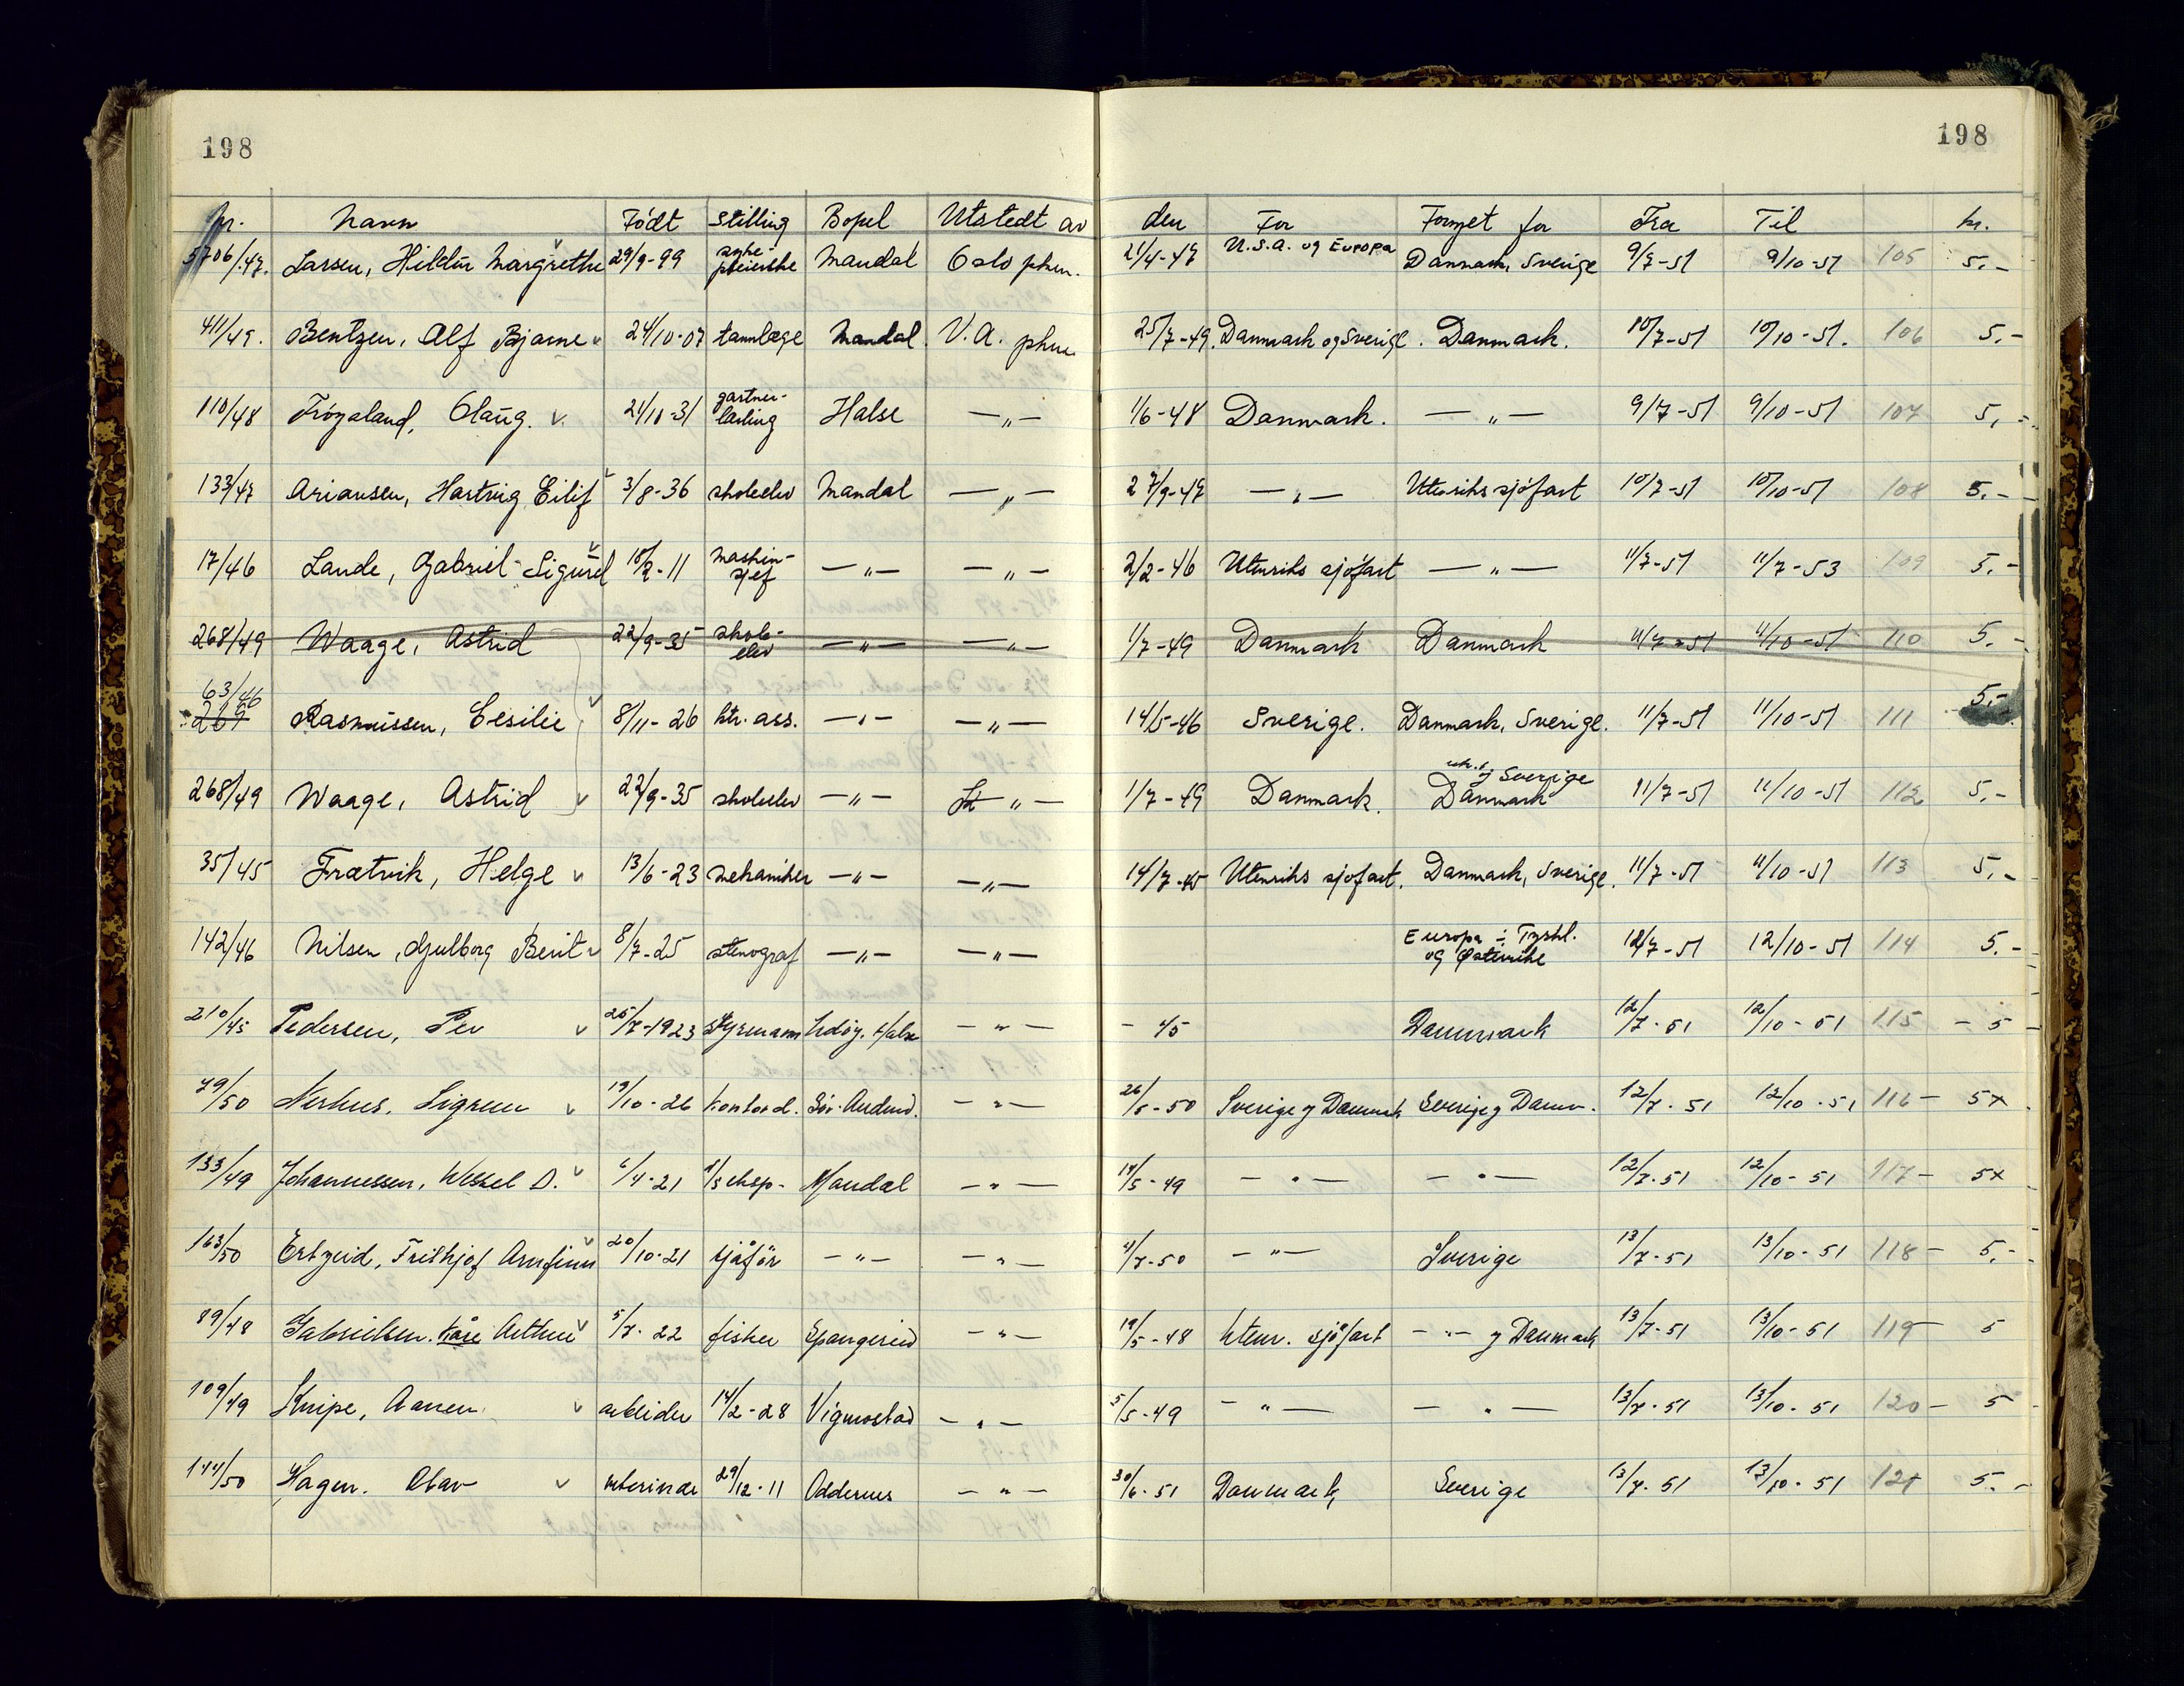 198
198
Nr. Navn Født Stilling Bopel Utstedt av den For Fornyet for Fra Til kr.
5706/47. Larsen, Hildur Margrethe 29/9-99 syke-pleierske Mandal Oslo pkm. 21/4-47 U.S.A. og Europa Danmark, Sverige 9/7-51 9/10-51 105 5.-
411/49. Bentzen, Alf Bjarne v 24/10-07 tannlege Mandal V.A. pkm. 25/7-49. Danmark og Sverige. Danmark. 10/7-51 10/10-51. 106 5.-
110/48 Frøysland, Olaug. v. 21/10-31 gartner-lærling Halse -"- 1/6-48 Danmark. -"- 9/7-51 9/10-51 107 5,-
133/47 Ariansen, Hartvig Eilif v 3/8-36 skoleelev Mandal -"- 27/9-47 -"- Utenriks sjøfart 10/7-51 10/10-51 108 5.-
17/46 Lande, Gabriel Sigurd v 18/2-11 maskin-sjef -"- -"- 2/2-46 Utenriks sjøfart -"- 11/7-51 11/7-53 109 5.-
268/49 Waage, Astrid 22/9-35 skole-elev -"- -"- 1/7-49 Danmark Danmark 11/7-51 11/10-51 110 5.-
63/46
269 Rasmussen, Cesilie v 8/11-26 ktr. ass. -"- -"- 14/5-46 Sverige. Danmark, Sverige. 11/7-51 11/10-51 111 5.-
268/49 Waage, Astrid v 22/9-35 skoleelev -"- -"- 1/7-49 Danmark. Danmark og Sverige 11/7-51 11/10-51 112 5.-
35/45 Frætvik, Helge v 13/6-23 mekaniker -"- -"- 14/7-45 Utenriks sjøfart. Danmark, Sverige. 11/7-51 11/10-51 113 5.-
142/46 Nilsen, Gulborg Berit v 8/7-25 stenograf -"- -"- Europa ÷ Tyskl. og Østerrike 12/7-51 12/10-51 114 5.-
210/45 Pedersen, Per v 25/7-1923 Styrmann Udøy. Halse -"- - 45 Danmark 12/7-51 12/10-51 115 - 5 -
79/50 Nerhus. Sigrun v 19/10-26 Kontord. Sør-Audned. -"- 26/5-50 Sverige og Danmark Sverige og Danm. 12/7-51 12/10-51 116 - 5x
133/49 Johannessen, Wessel D. v 6/4-21 Mandal -"- 19/5-49 -"- -"- 12/7.51 12/10-51 117 - 5x
163/50 Ertzeid, Frithjof Arnfinn v 20/10-21 sjåfør -"- -"- 11/7-50 -"- Sverige 13/7-51 13/10-51 118 - 5.-
89/48 Gabrielsen. Kåre Arthur v 5/7-22 fisker Spangereid -"- 19/5-48 Utenr. sjøfart -"- og Danmark 13/7-51 13/10-51 119 - 5
109/49 Knipe, Aanen v arbeider 14/2-28 Vigmostad -"- 5/5-49 -"- -"- 13/7-51 13/10-51 120 - 5
144/50 Hagen. Olav v veterinær 29/12-11 Oddernes -"- 30/6-51 Danmark, Sverige 13/7-51 13/10-51 121 5.-